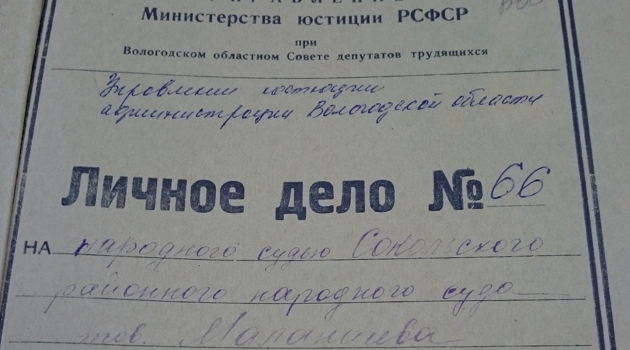 Министерства юстиции РСФСР
при
Вологодском областном Совете депутатов трудящихся
Управлении юстиции
администрации Вологодской области
Личное дело № 66
НА народного судью Сокольского
районного народного суда
тов.